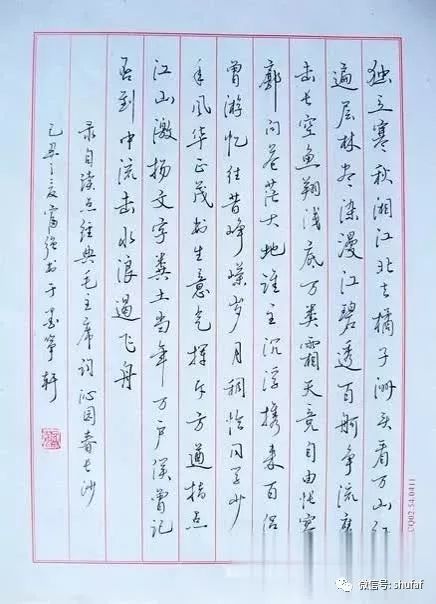 独立寒秋湘江北去橘子洲头看万山红
遍层林尽染漫江碧透百舸争流鹰
击长空鱼翔浅底万类霜天竞自由怅寥
廓问苍茫大地谁主沉浮携来百侣
曾游忆往昔峥嵘岁月稠恰同学少
年风华正茂书生意气挥斥方遒指点
江山激扬文字粪土当年万户侯曾记
否到中流击水浪遏飞舟
录自读点经典毛主席词沁园春长沙
己丑之夏富强书于墨轩
微信号: shufaf